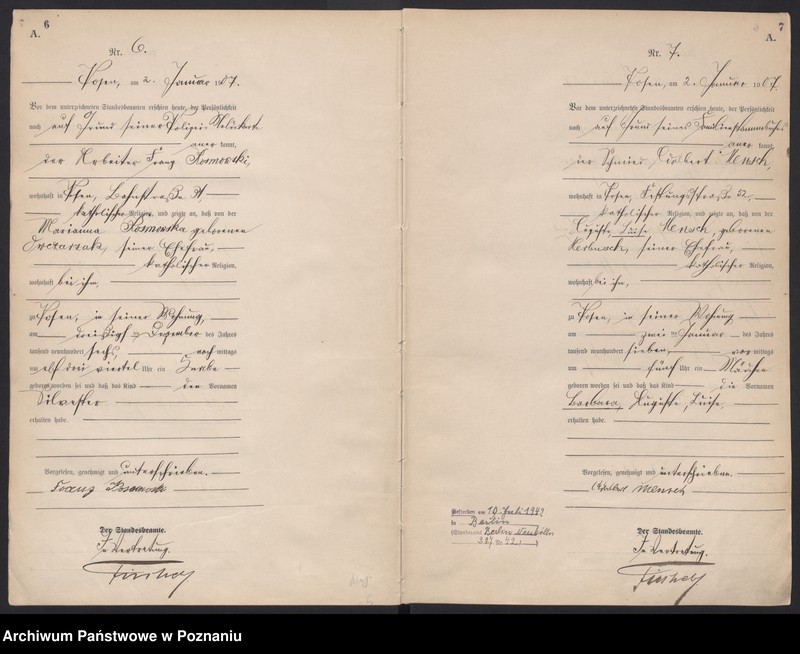 6
A.
Nr. 6.
Posen, am 2. Januar 1907.
Vor dem unterzeichneten Standesbeamten erschien heute, der Persönlichkeit
nach auf Grund seiner Polizei Meldekarte
aner kannt,
der Arbeiter Franz Kosmowski,
wohnhaft in Posen, Bahnstraße
katholischer Religion, und zeigte an, daß von der
Marianna Kosmowska geborenen
Owczarzak, seiner Ehefrau,
katholischer Religion,
wohnhaft bei ihm,
zu Posen, in seiner Wohnung,
am dreißigsten Dezember des Jahres
tausend neunhundert sechs, nach mittags
um elf drei viertel Uhr ein Knabe
geboren worden sei und daß das Kind den Vornamen
Silvester
erhalten habe.
Vorgelesen, genehmigt und unterschrieben.
Franz Kosmowski
Der Standesbeamte.
In Vertretung.
7
A.
Nr. 7.
Posen, am 2. Januar 1907.
Vor dem unterzeichneten Standesbeamten erschien heute, der Persönlichkeit
nach auf Grund seines Familienstammbuches
aner kannt,
der Schmied Adalbert Mensch,
wohnhaft in Posen, Festungsstraße 52,
katholischer Religion, und zeigte an, daß von der
Auguste, Luise Mensch, geborenen
seiner Ehefrau,
katholischer Religion,
wohnhaft bei ihm,
zu Posen, in seiner Wohnung
am zweiten Januar des Jahres
tausend neunhundert sieben, vor mittags
um fünf Uhr ein Mädchen
geboren worden sei und daß das Kind die Vornamen
Barbara, Auguste, Luise
erhalten habe.
Vorgelesen, genehmigt und unterschrieben.
Adalbert Mensch
Gestorben am 10. Juli 1942
in Berlin
(Standesamt Berlin Neukölln
Der Standesbeamte.
In Vertretung.
Archiwum Państwowe w Poznaniu